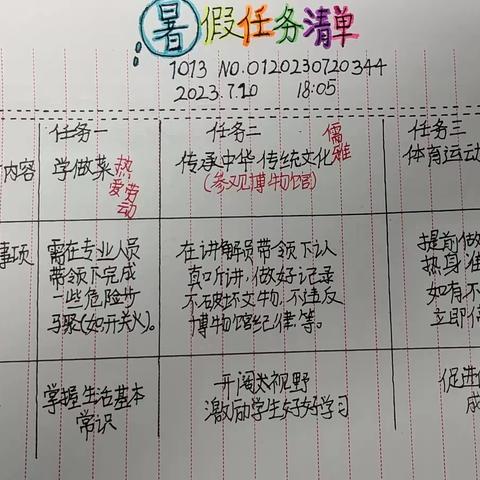 暑假任务清单
1013 NO.0120230720344
2023.7.10 18:05
任务一 任务二 任务三
内容 学做菜 热爱劳动 传承中华传统文化 儒雅 体育运动
(参观博物馆)
事项 需在专业人员 在讲解员带领下认 提前做
带领下完成 真听讲,做好记录 热身准
一些危险步 不破坏文物,不违反 如有不
骤(如开关火)。 博物馆纪律等。 立即停
掌握生活基本 开阔类视野 促进
常识 激励学生好好学习 成